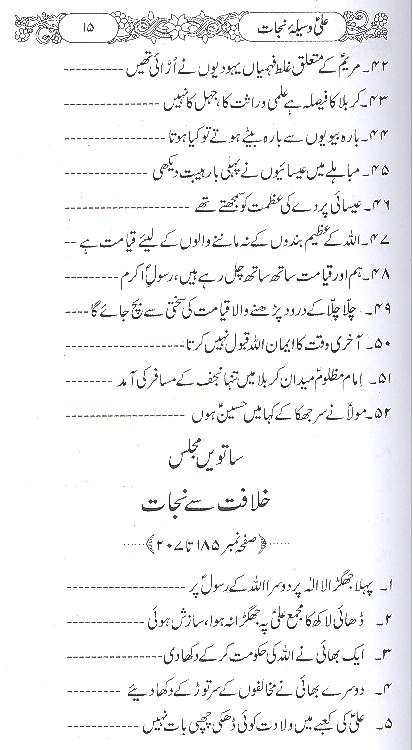 علیؑ وسیلۂ نجات ۱۵
۴۲۔ مریمؑ کے متعلق غلط فہمیاں یہودیوں نے اُڑائی تھیں ----------
۴۳۔ کربلا کا فیصلہ ہے علمی وراثت کا، جہل کا نہیں ----------
۴۴۔ بارہ بیویوں سے بارہ بیٹے ہوتے تو کیا ہوتا ----------
۴۵۔ مباہلے میں عیسائیوں نے پہلی بار ہیبت دیکھی ----------
۴۶۔ عیسائی پردے کی عظمت کو سمجھتے تھے ----------
۴۷۔ اللہ کے عظیم بندوں کے نہ ماننے والوں کے لیئے قیامت ہے --
۴۸۔ ہم اور قیامت ساتھ ساتھ چل رہے ہیں، رسولِؐ اکرم --------
۴۹۔ چلّا چلّا کے درود پڑھنے والا قیامت کی سختی سے بچ جائے گا ----
۵۰۔ آخری وقت کا ایمان اللہ قبول نہیں کرتا ----------
۵۱۔ امام مظلومؑ میدان کربلا میں تنہا نجف کے مسافر کی آمد --------
۵۲۔ مولاؑ نے سر جھکا کے کہا میں حسینؑ ہوں ----------
ساتویں مجلس
خلافت سے نجات
.....﴿صفحہ نمبر ۱۸۵ تا ۲۰۷﴾.....
۱۔ پہلا جھگڑا لا الٰہ پر دوسرا اللہ کے رسولؐ پر ----------
۲۔ ڈھائی لاکھ کا مجمع علیؑ پہ جھگڑا نہ ہوا، سازش ہوئی ----------
۳۔ ایک بھائی نے اللہ کی حکومت کر کے دکھا دی ----------
۴۔ دوسرے بھائی نے مخالفوں کے سر توڑ کے دکھا دیئے --------
۵۔ علیؑ کی کعبے میں ولادت کوئی ڈھکی چھپی بات نہیں --------